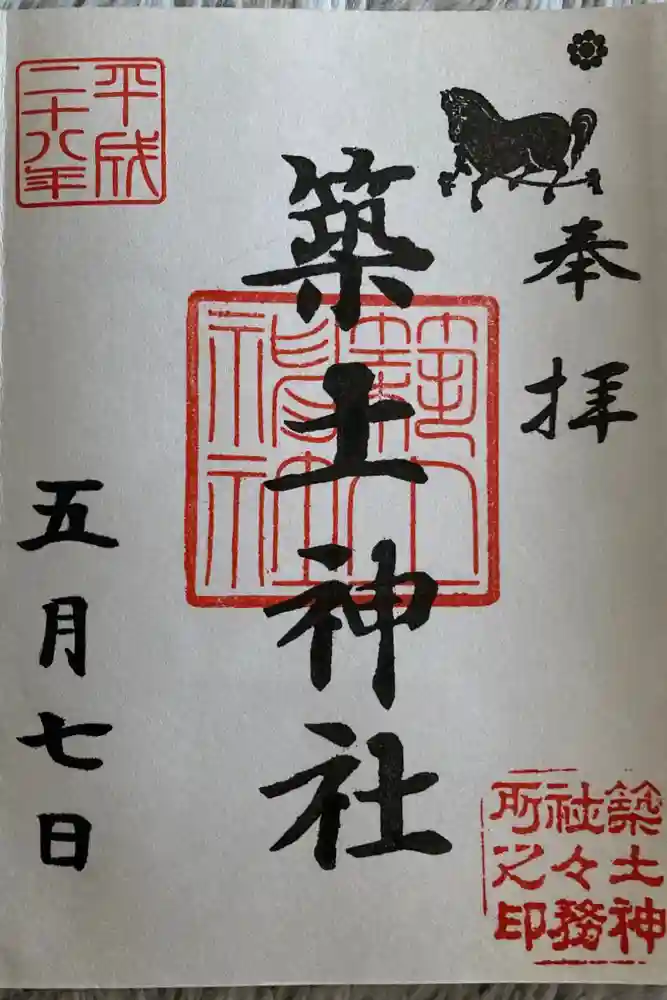 奉拝
築土神社
築土神社
平成
二十八年
五月七日
築土神
社々務
所之印